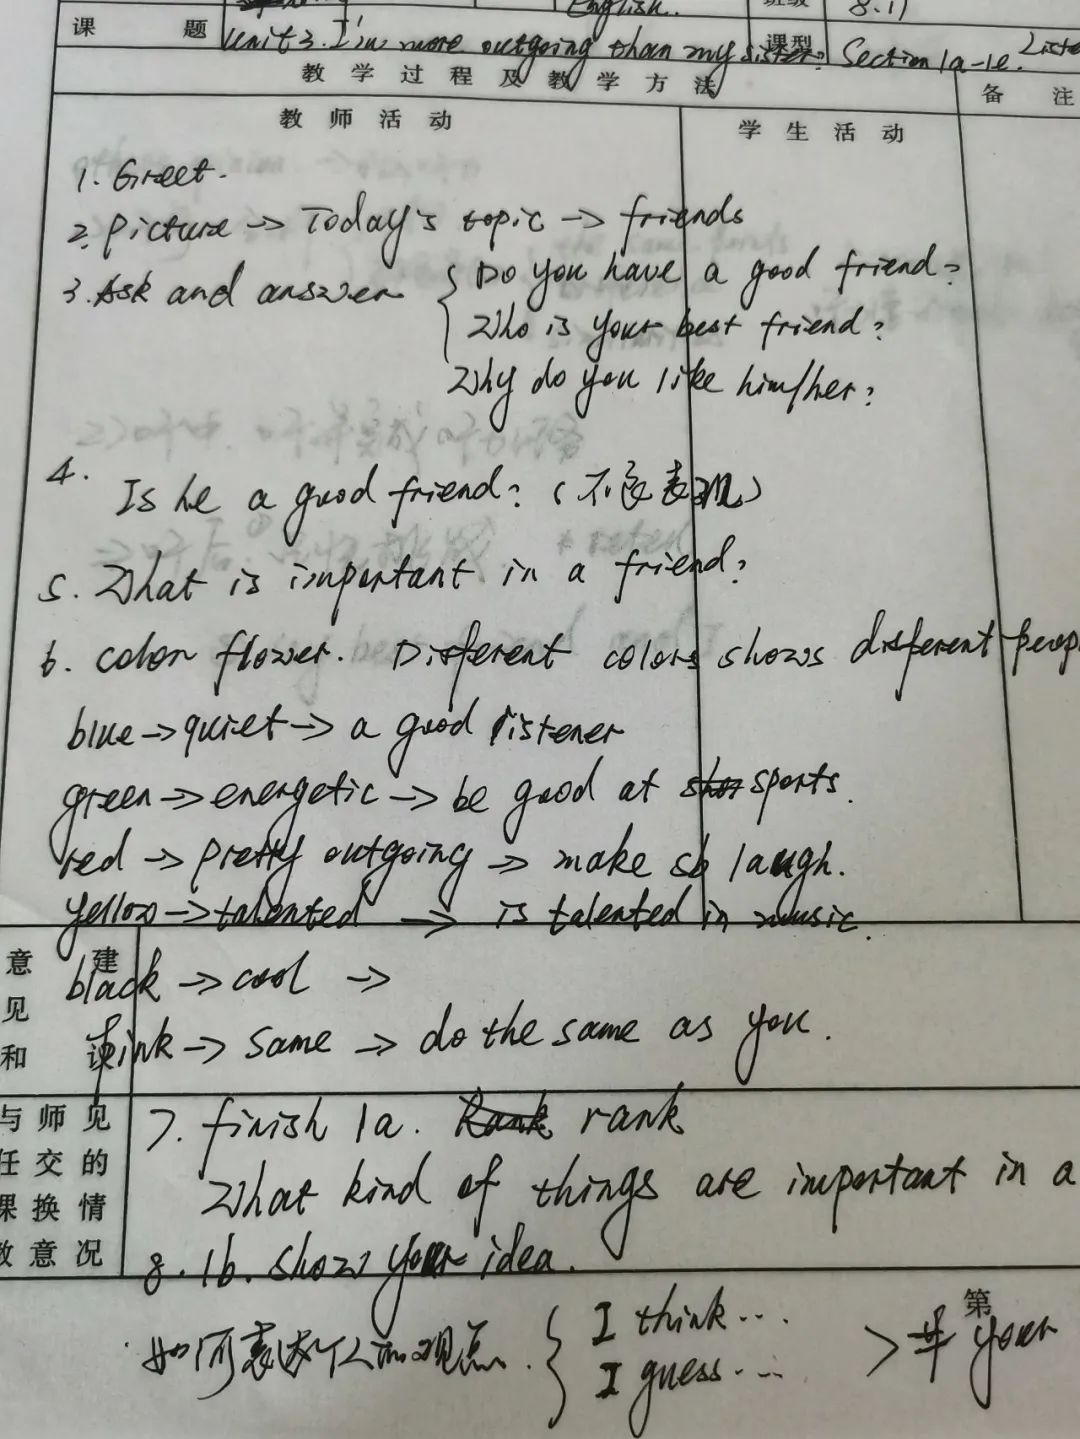 English. 班级 8.11
课题 Unit3. I'm more outgoing than my sister. 课型 Section 1a-1e.
教学过程及教学方法 备注
教师活动 学生活动
1. Greet.
2. Picture → Today's topic → friends
3. Ask and answer { Do you have a good friend?
Who is your best friend?
Why do you like him/her?
4. Is he a good friend? (不良表现)
5. What is important in a friend?
6. color flower. Different colors shows different
blue → quiet → a good listener
green → energetic → be good at sports.
red → pretty outgoing → make sb laugh.
yellow → talented → is talented in music.
black → cool →
pink → same → do the same as you.
意见和建议
7. finish 1a. Rank rank
What kind of things are important in a
8. 1b. show your idea.
与师见
任交的
课换情
教意况
如何表达个人的观点. { I think...
I guess...
> your
第